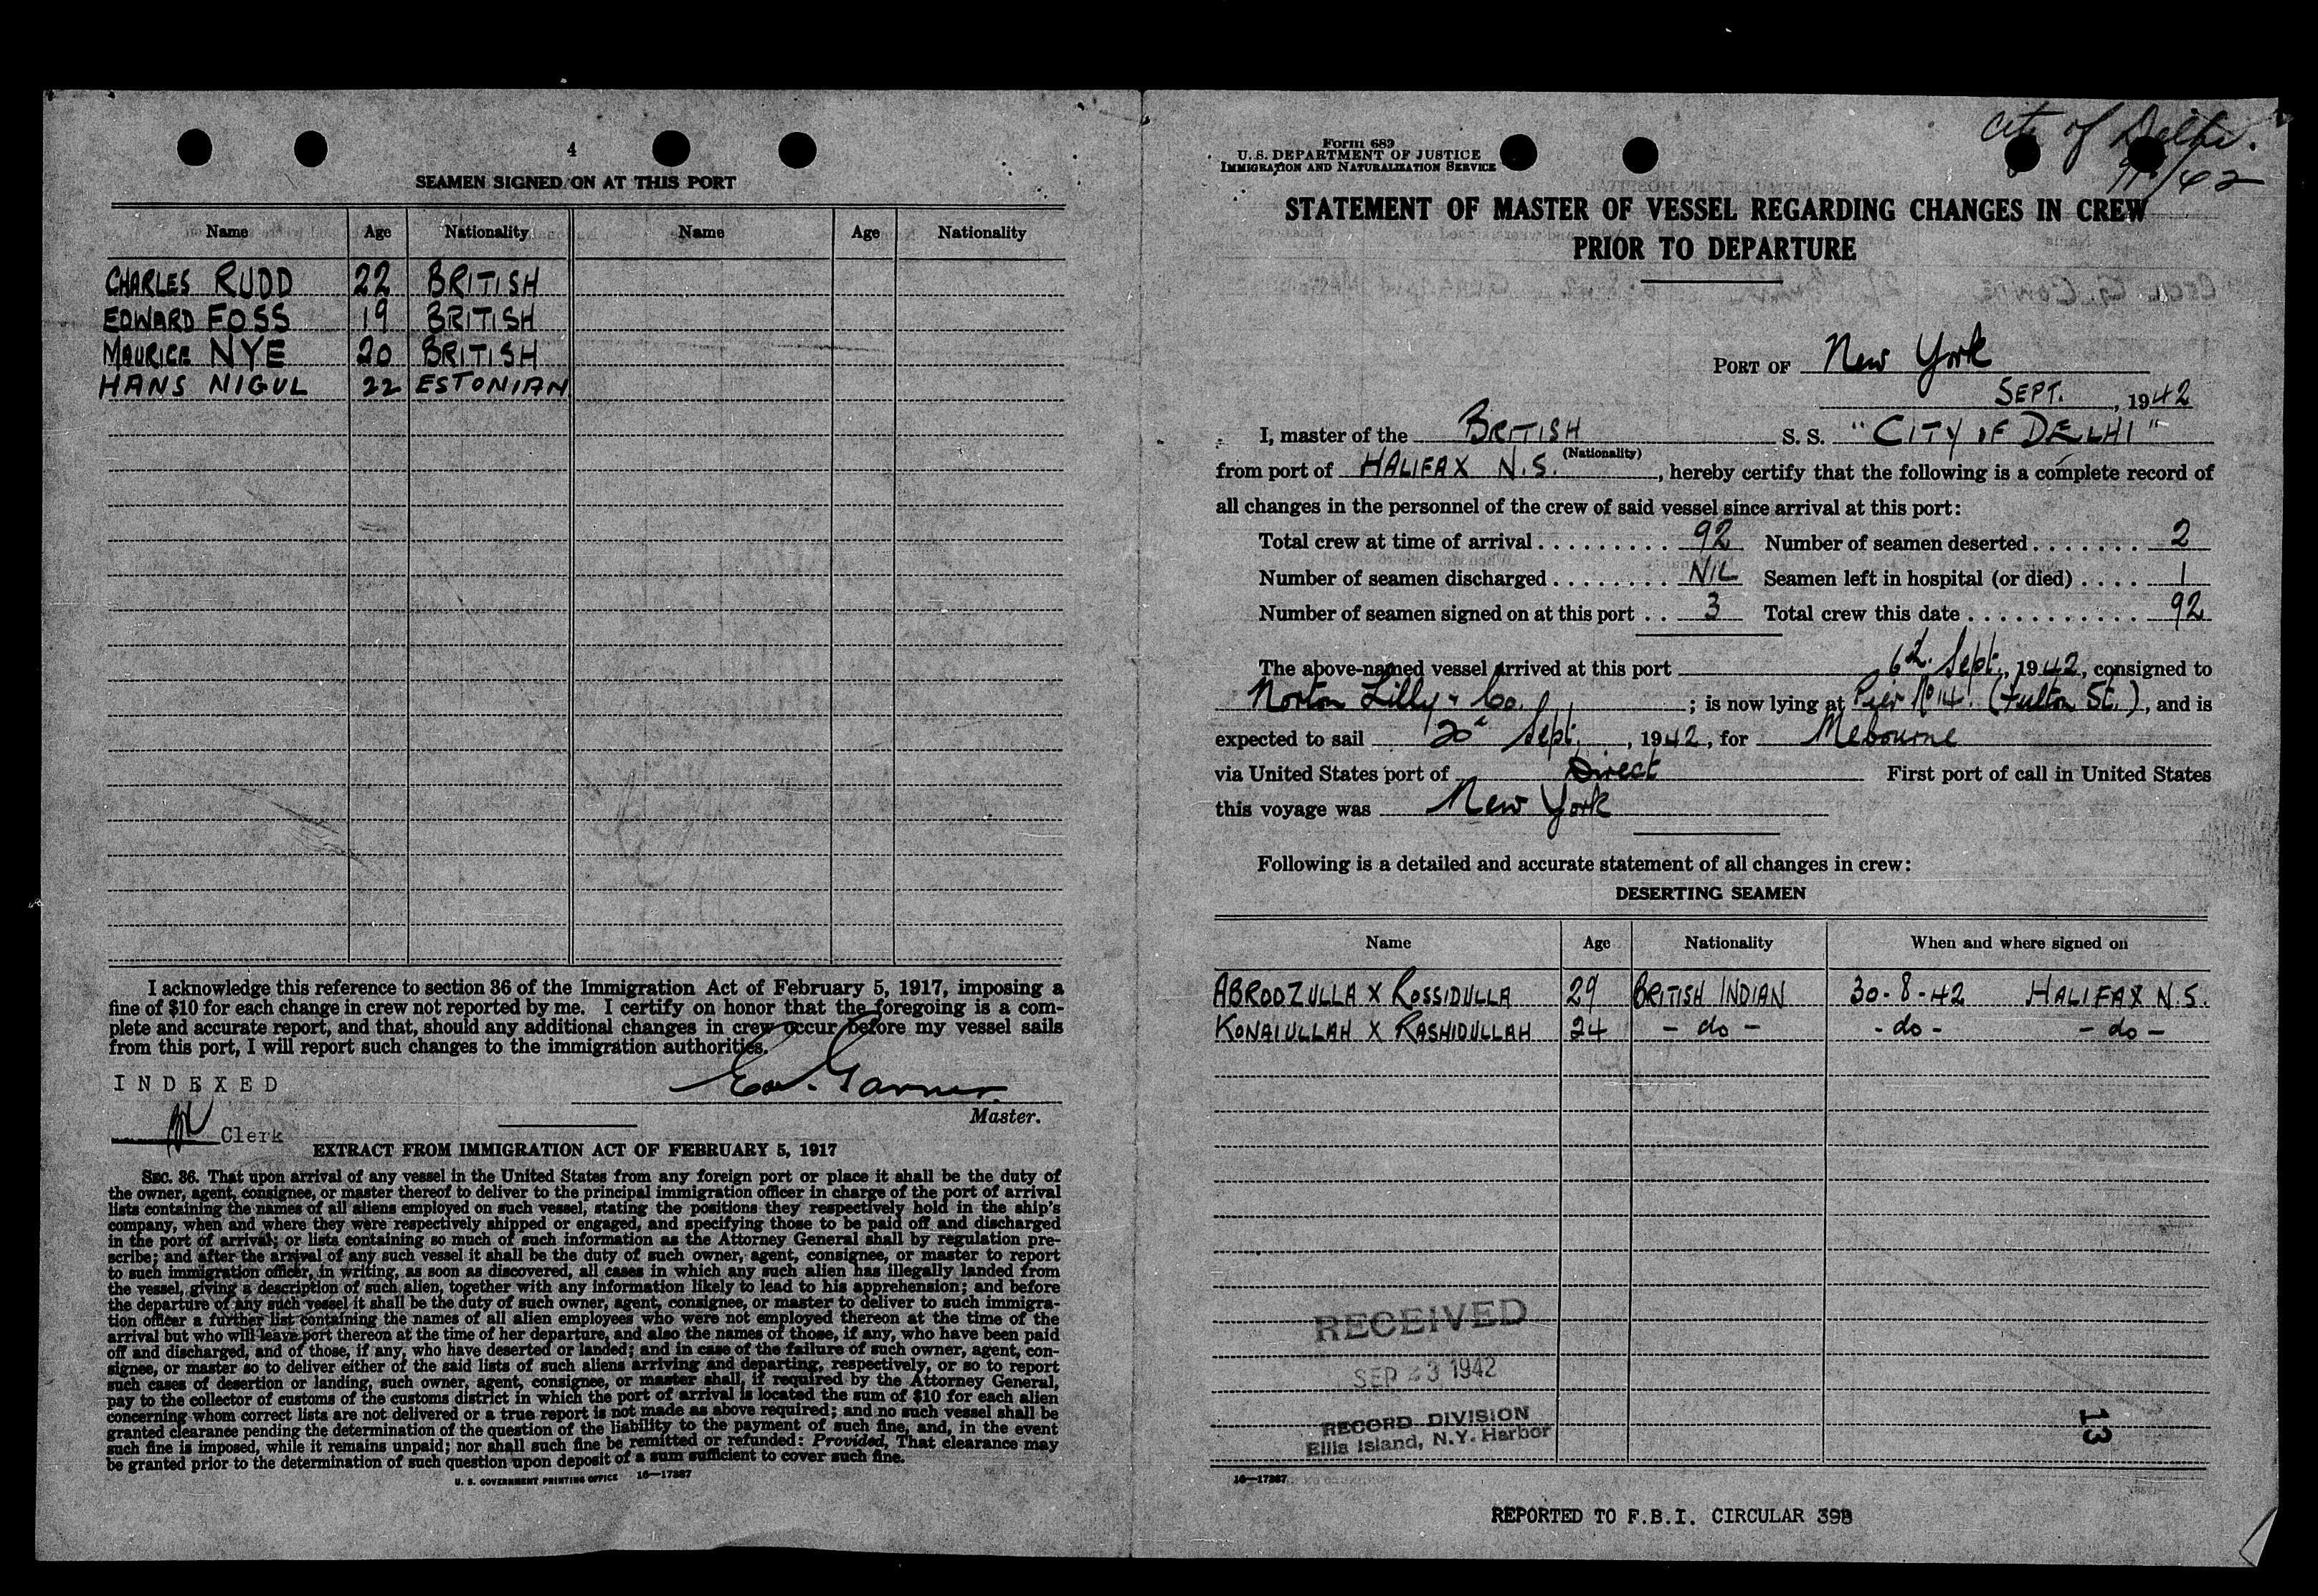 4
SEAMEN SIGNED ON AT THIS PORT
Name Age Nationality Name Age Nationality
CHARLES RUDD 22 BRITISH
EDWARD FOSS 19 BRITISH
MAURICE NYE 20 BRITISH
HANS NIGUL 22 ESTONIAN
I acknowledge this reference to section 36 of the Immigration Act of February 5, 1917, imposing a
fine of $10 for each change in crew not reported by me. I certify on honor that the foregoing is a com-
plete and accurate report, and that, should any additional changes in crew occur before my vessel sails
from this port, I will report such changes to the immigration authorities.
INDEXED
Master.
Clerk
EXTRACT FROM IMMIGRATION ACT OF FEBRUARY 5, 1917
SEC. 36. That upon arrival of any vessel in the United States from any foreign port or place it shall be the duty of
the owner, agent, consignee, or master thereof to deliver to the principal immigration officer in charge of the port of arrival
lists containing the names of all aliens employed on such vessel, stating the positions they respectively hold in the ship's
company, when and where they were respectively shipped or engaged, and specifying those to be paid off and discharged
in the port of arrival; or lists containing so much of such information as the Attorney General shall by regulation pre-
scribe; and after the arrival of any such vessel it shall be the duty of such owner, agent, consignee, or master to report
to such immigration officer, in writing, as soon as discovered, all cases in which any such alien has illegally landed from
the vessel, giving a description of such alien, together with any information likely to lead to his apprehension; and before
the departure of any such vessel it shall be the duty of such owner, agent, consignee, or master to deliver to such immigra-
tion officer a further list containing the names of all alien employees who were not employed thereon at the time of the
arrival but who will leave port thereon at the time of her departure, and also the names of those, if any, who have been paid
off and discharged, and of those, if any, who have deserted or landed; and in case of the failure of such owner, agent, con-
signee, or master so to deliver either of the said lists of such aliens arriving and departing, respectively, or so to report
such cases of desertion or landing, such owner, agent, consignee, or master shall, if required by the Attorney General,
pay to the collector of customs of the customs district in which the port of arrival is located the sum of $10 for each alien
concerning whom correct lists are not delivered or a true report is not made as above required; and no such vessel shall be
granted clearance pending the determination of the question of the liability to the payment of such fine, and, in the event
such fine is imposed, while it remains unpaid; nor shall such fine be remitted or refunded: Provided, That clearance may
be granted prior to the determination of such question upon deposit of a sum sufficient to cover such fine.
U. S. GOVERNMENT PRINTING OFFICE 16—17387
City of Delhi.
Form 689
U. S. DEPARTMENT OF JUSTICE
IMMIGRATION AND NATURALIZATION SERVICE
STATEMENT OF MASTER OF VESSEL REGARDING CHANGES IN CREW
PRIOR TO DEPARTURE
PORT OF New York
SEPT. , 1942
I, master of the BRITISH S. S. "CITY OF DELHI"
(Nationality)
from port of HALIFAX N.S. , hereby certify that the following is a complete record of
all changes in the personnel of the crew of said vessel since arrival at this port:
Total crew at time of arrival . . . . . . . . . 92 Number of seamen deserted . . . . . . . 2
Number of seamen discharged . . . . . . . . NIL Seamen left in hospital (or died) . . . . 1
Number of seamen signed on at this port . . 3 Total crew this date . . . . . . . . . . . 92
The above-named vessel arrived at this port 6th Sept. , 1942, consigned to
Norton Lilly & Co. ; is now lying at Pier No 14. (Fulton St.) , and is
expected to sail 20th Sept. , 1942, for Mebourne
via United States port of Direct First port of call in United States
this voyage was New York
Following is a detailed and accurate statement of all changes in crew:
DESERTING SEAMEN
Name Age Nationality When and where signed on
ABROOZULLA X ROSSIDULLA 29 BRITISH INDIAN 30-8-42 HALIFAX N.S.
KONAIULLAH X RASHIDULLAH 24 - do - - do - - do -
RECEIVED
SEP 23 1942
RECORD DIVISION
Ellis Island, N.Y. Harbor
13
16—17387
REPORTED TO F.B.I. CIRCULAR